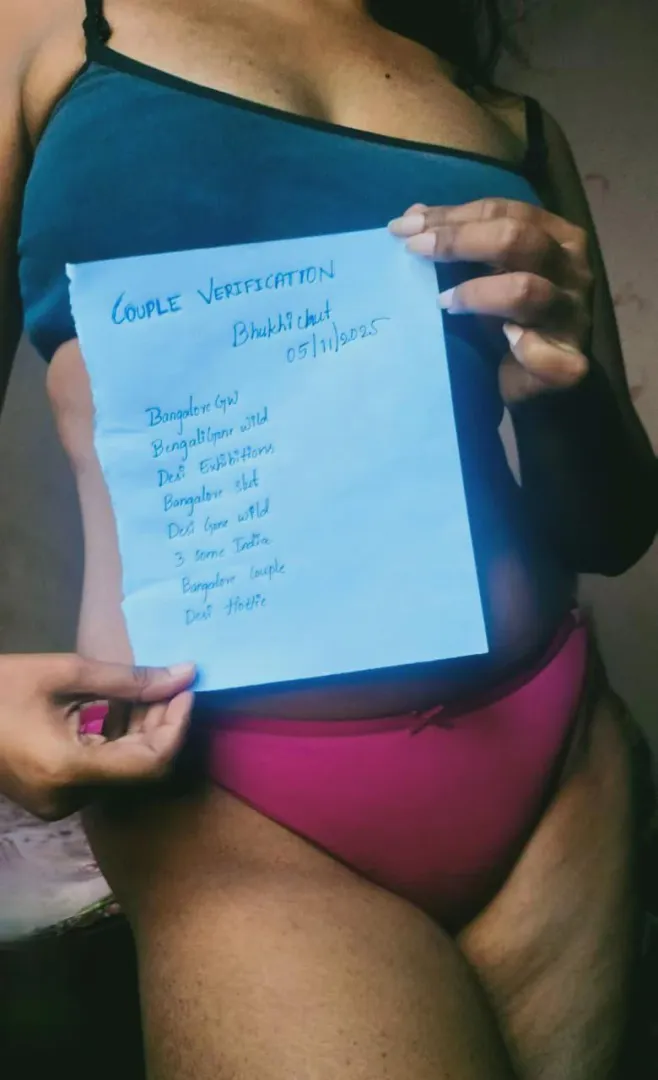 COUPLE VERIFICATION
Bhukhichut
05/11/2025
Bangalore GW
BengaliGone wild
Desi Exhibitions
Bangalore slut
Desi Gone wild
3 some India
Bangalore Couple
Desi Hottie